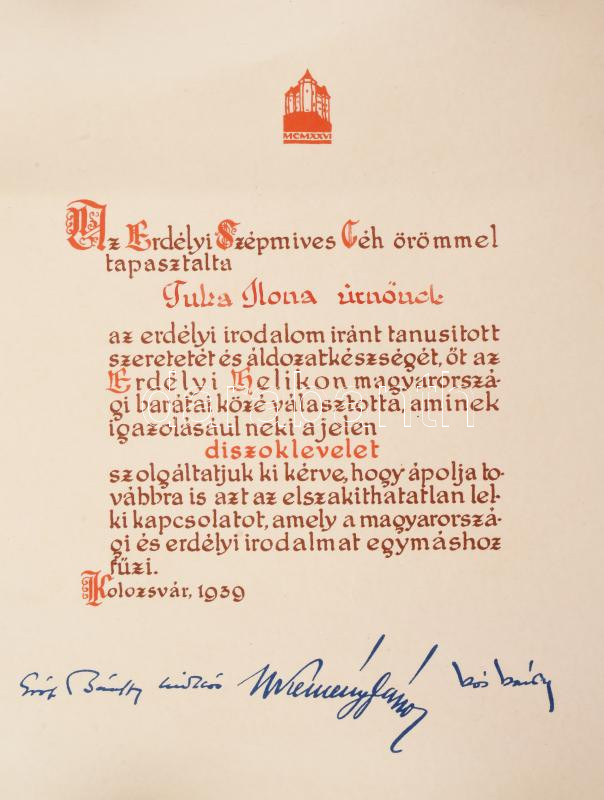 MCMXXVI
Az Erdélyi Szépmives Céh örömmel
tapasztalta
Tuka Ilona úrnőnek
az erdélyi irodalom iránt tanusitott
szeretetét és áldozatkészségét, őt az
Erdélyi Helikon magyarorszá-
gi barátai közé választotta, aminek
igazolásául neki a jelen
diszoklevelet
szolgáltatjuk ki kérve, hogy ápolja to-
vábbra is azt az elszakithatatlan lel-
ki kapcsolatot, amely a magyarorszá-
gi és erdélyi irodalmat egymáshoz
fűzi.
Kolozsvár, 1939
Gróf Bánffy Miklós Kemény János Kós Károly